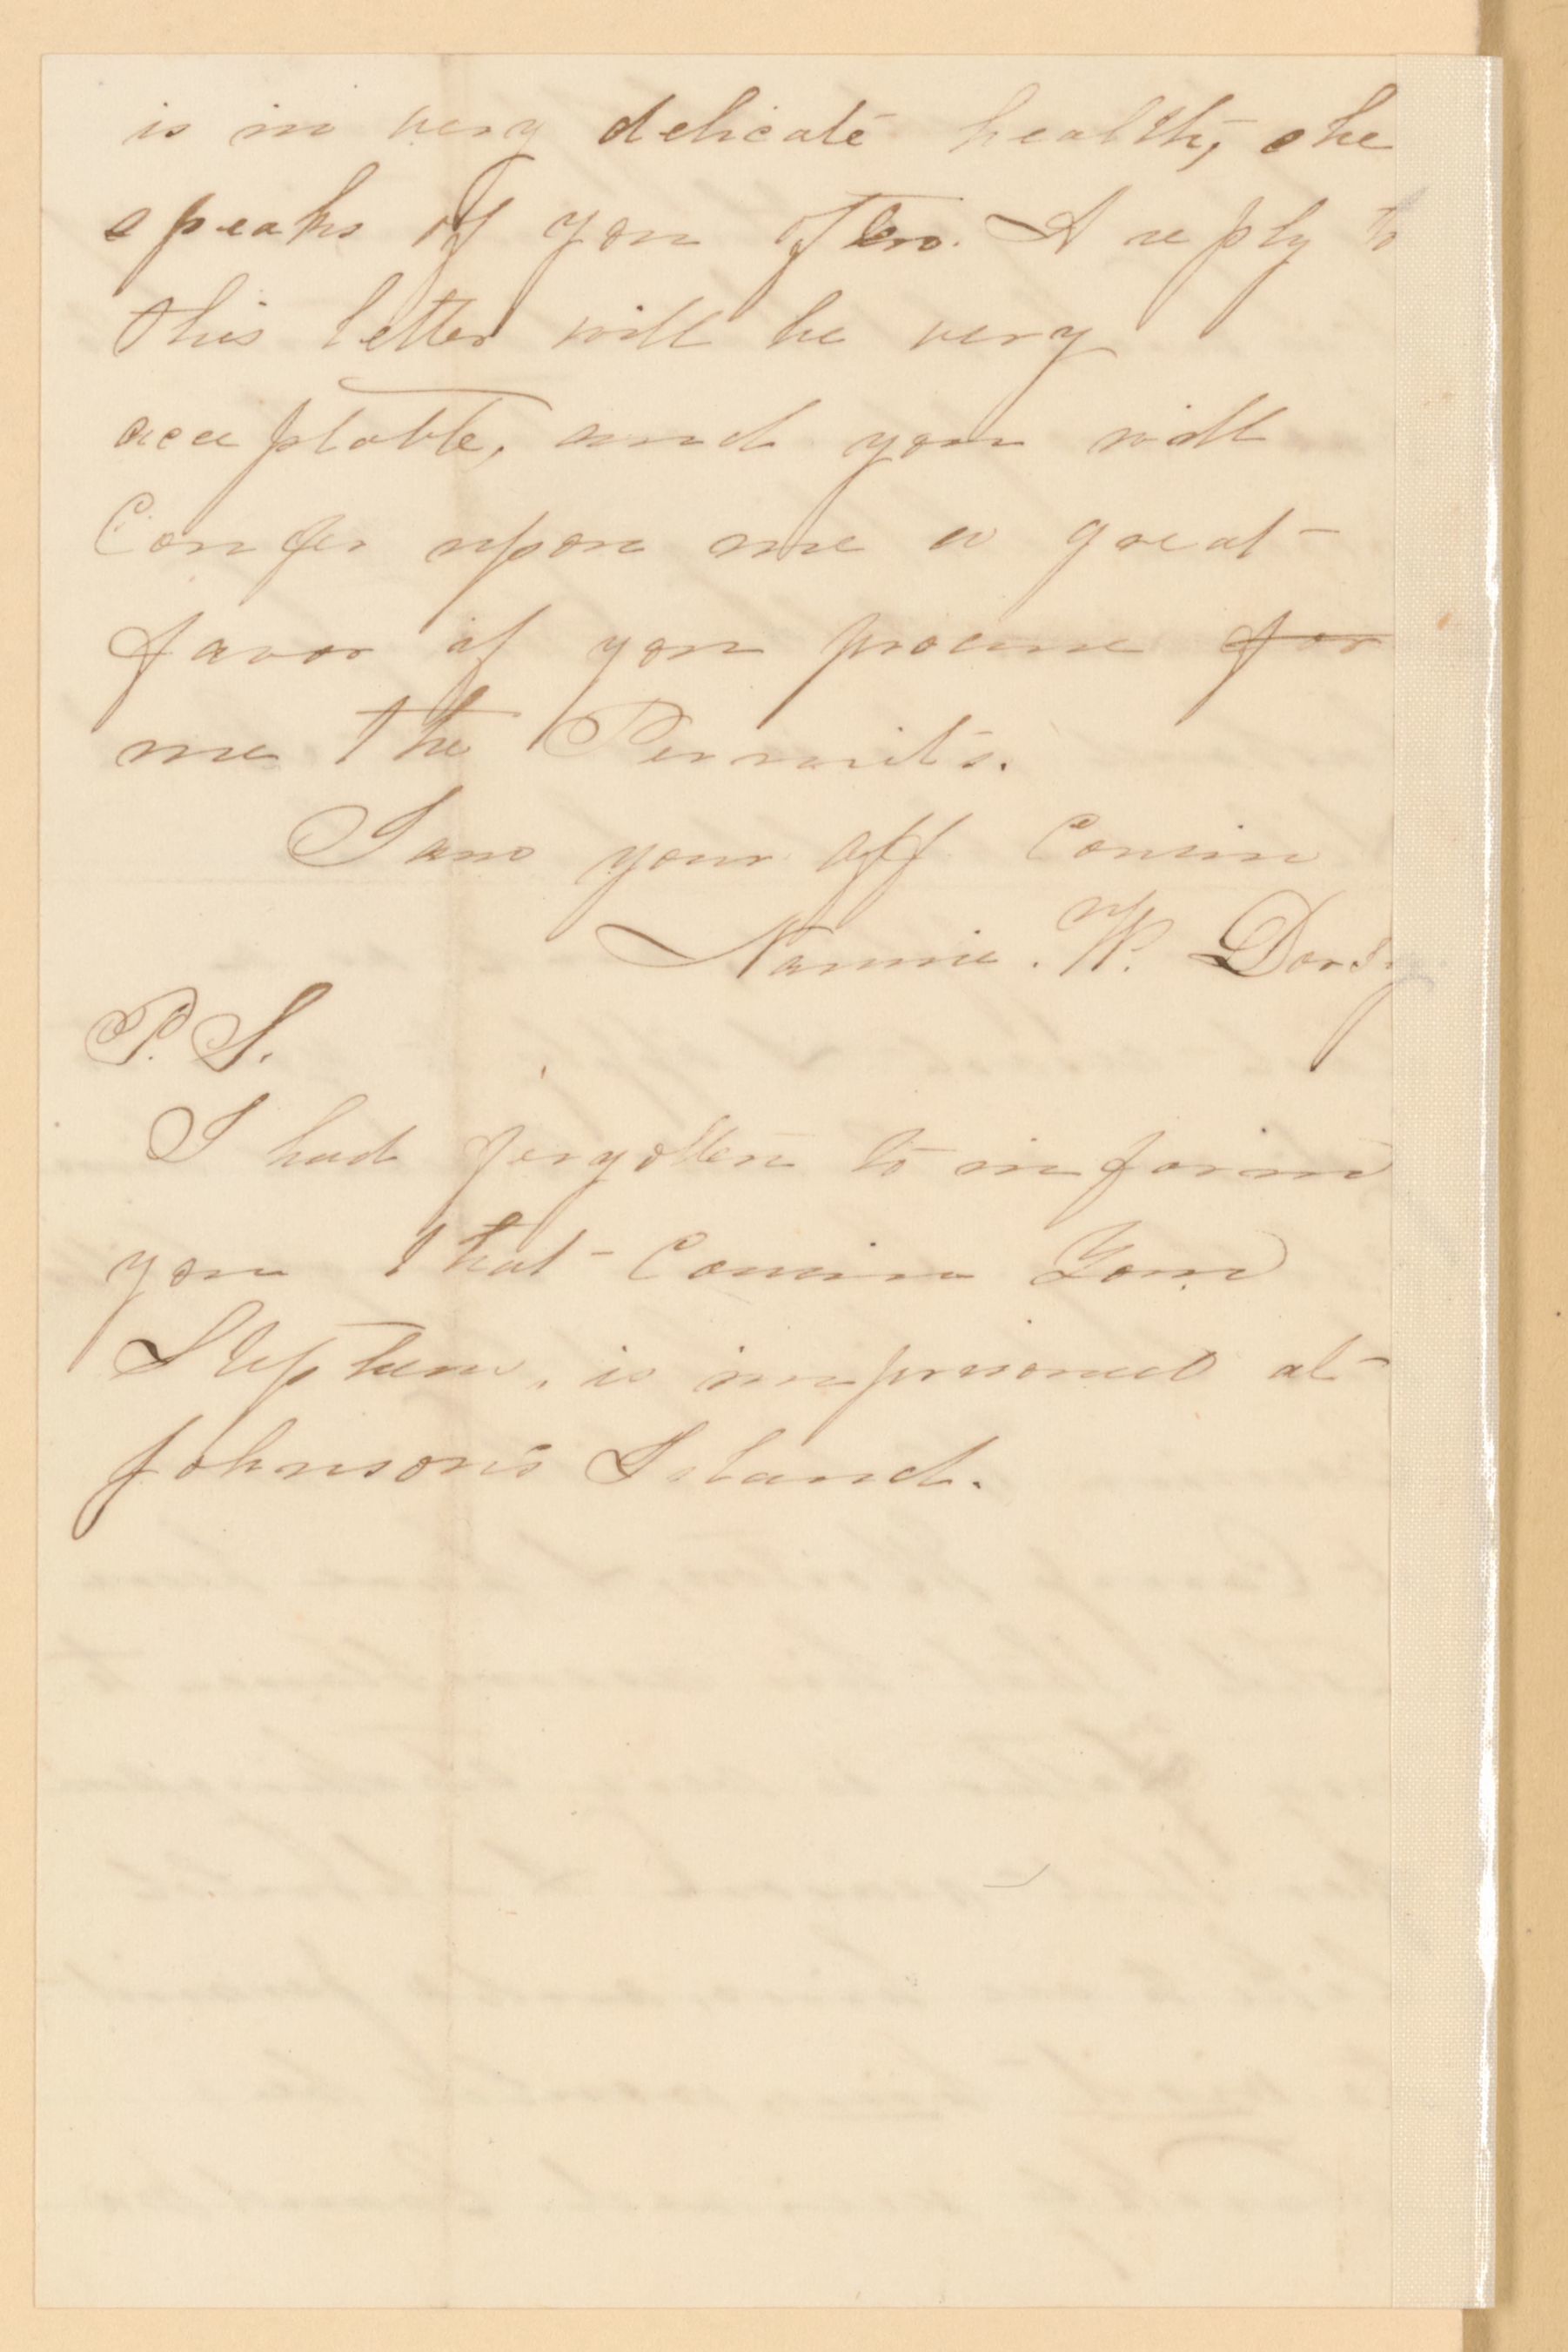 is in very delicate health, she
speaks of you often. A reply to
this letter will be very
acceptable, and you will
Confer upon me a great
favor if you procure for
me the Permits.
I am your aff Cousin
Nannie. W. Dorsey
P. S.
I had forgotten to inform
you that Cousin Tom
Stephens, is imprisoned at
Johnson's Island.